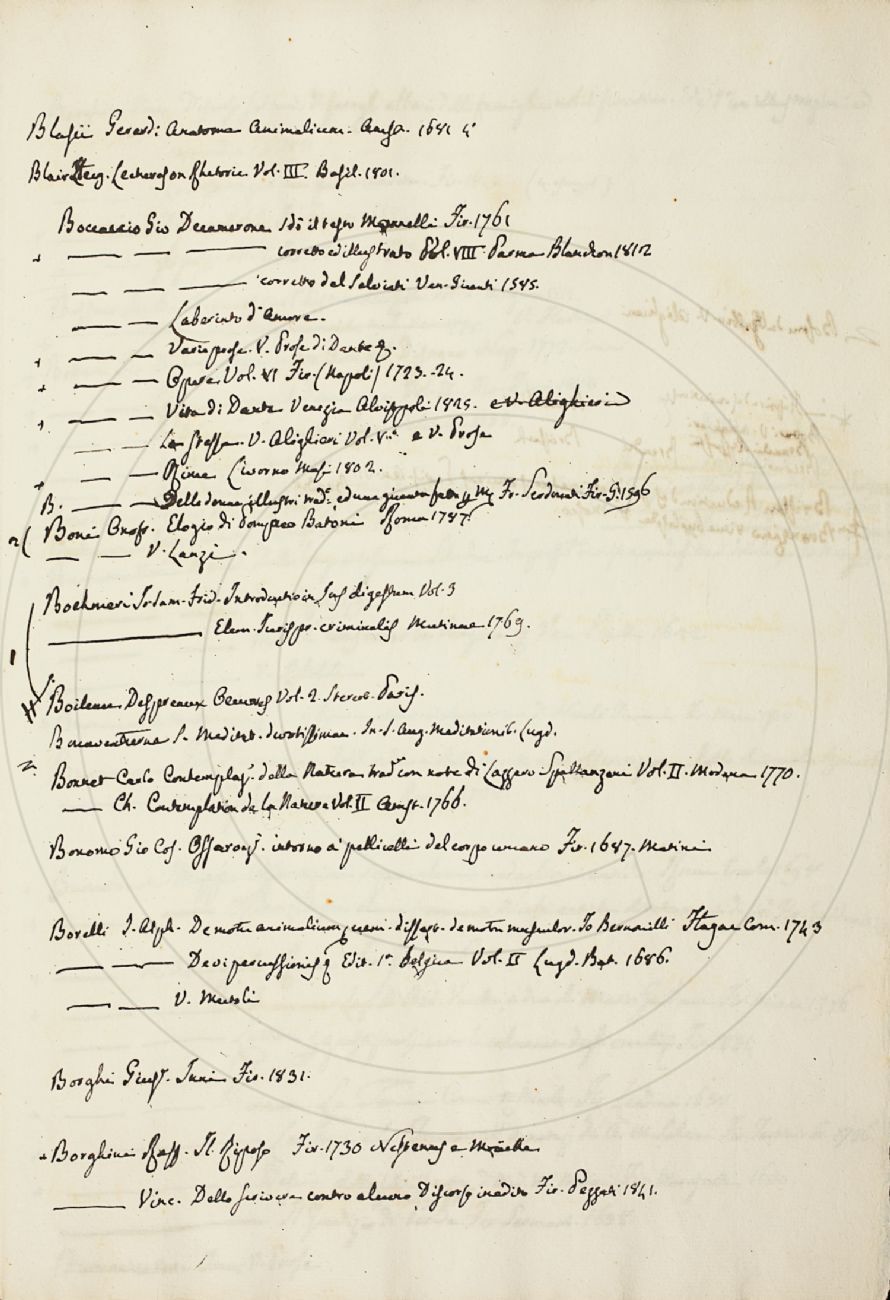 Blasii Gerardi Anatome Animalium. Amst. 1681 4°
Blair Ueg. Lectures on Rhetoric Vol. III. Basil. 1801.
Boccaccio Gio Decamerone sec.° il testo Mannelli Fir. 1761
— — — corretto ed illustrato Vol. VIII Parma Blanchon 1812
— — — corretto dal Salviati Ven. Giunti 1585.
— — Laberinto d'Amore.
— — Varie prose. V. Prose di Dante &.
— — Opere Vol. VI Fir. (Napoli) 1723.-24.
— — Vita di Dante Venezia Alvisopoli 1825. e V. Alighieri
— — La stessa. V. Alighieri Vol. V.° e V. Prose
— — Rime Livorno Masi 1802.
B. — — Delle donne illustri trad. ed una giunta fatta Fr. Serdonati Fir. G. 1596
2( Boni Onofr. Elogio di Pompeo Batoni Roma 1787.
— — V. Lanzi.
Boehmeri Io. Sam. Frid. Introductio in Jus digestum Vol. 3
1 — Elem. Jurispr. criminalis Mutinae 1769.
Boileau Despreaux Oeuvres Vol. 2. Stereot. Paris.
Bonaventurae S. Meditat. devotissimae. In S. Aug. Meditationib. Lugd.
Bonnet Carlo Contemplaz. della Natura trad. con note di Lazzaro Spallanzani Vol. II. Modena 1770.
— Ch. Contemplation de la Nature Vol. II Amst. 1766.
Bonomo Gio Cos. Osservaz. intorno a' pellicelli del corpo umano Fir. 1687. Matini
Borelli J. Alph. De motu animalium, dissert. de motu musculor. Io Bernoilli Hagae Com. 1743
— — De vi percussionis & Edit. 1.a belgica Vol. II Lugd. Bat. 1686.
— — V. Mutoli
Borghi Gius. Inni Fir. 1831.
Borghini Raff. Il Riposo Fir. 1730 Nestenus e Moücke
— Vinc. Dello scrivere contro alcuno Discorso inedito Fir. Pezzati 1841.